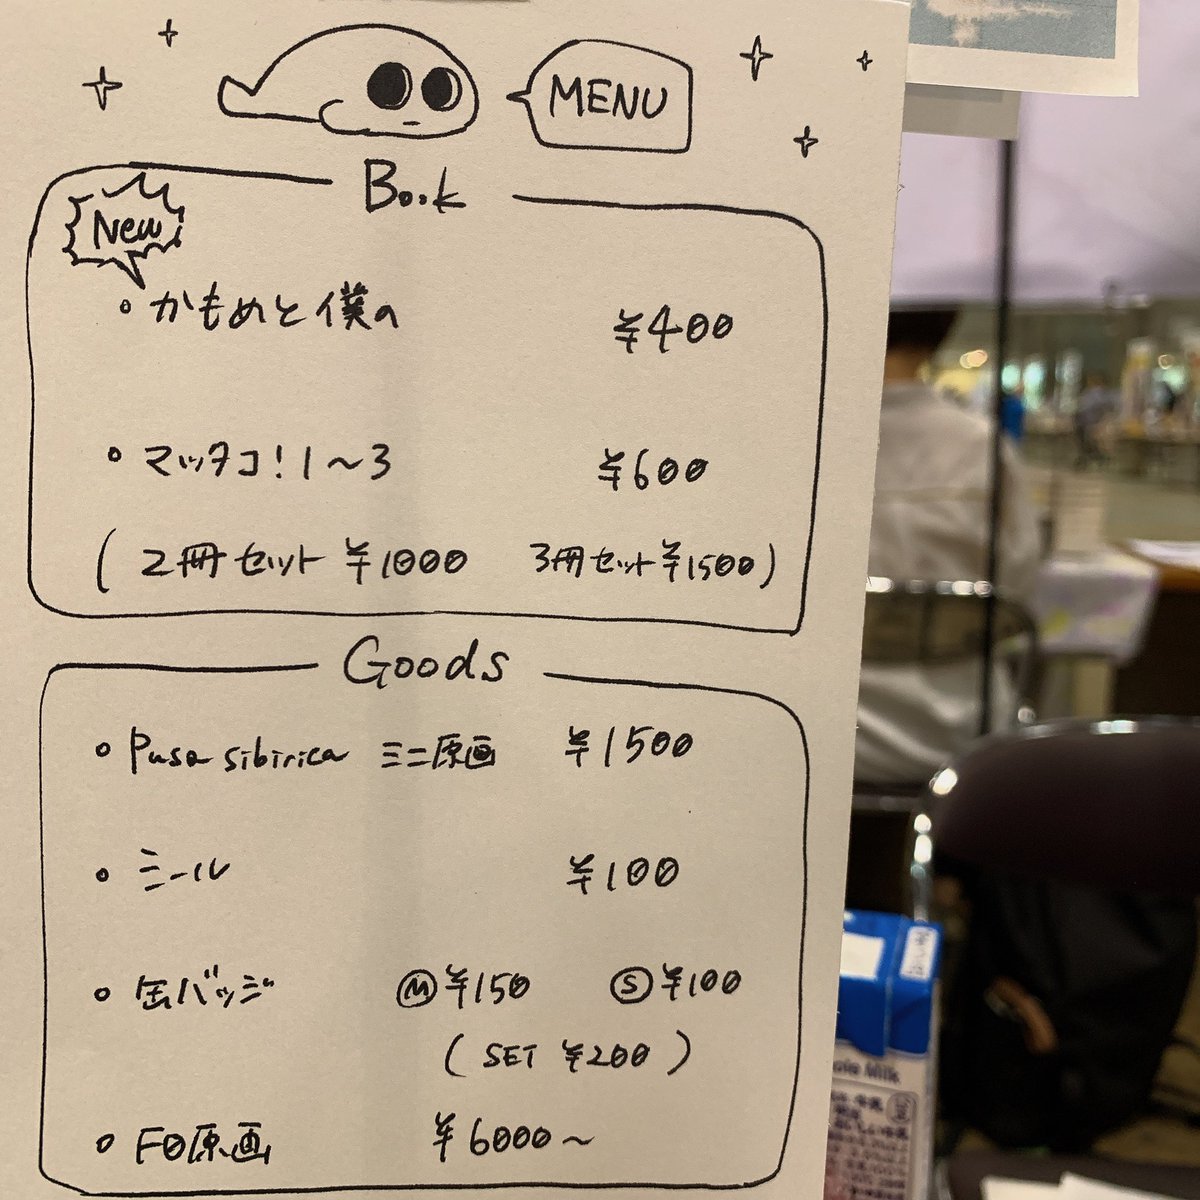 MENU
Book
New
・かもめと僕の ¥400
・マッタコ!1〜3 ¥600
(2冊セット ¥1000 3冊セット¥1500)
Goods
・Pusa sibirica ミニ原画 ¥1500
・ミール ¥100
・缶バッジ Ⓜ¥150 Ⓢ¥100
(SET ¥200)
・F0原画 ¥6000〜
Milk